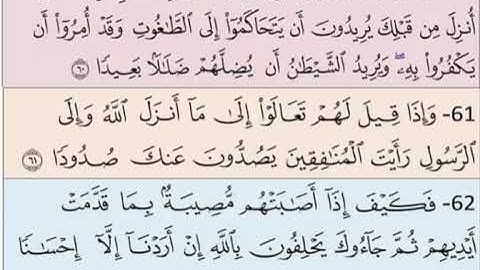 أُنزِلَ مِن قَبۡلِكَ يُرِيدُونَ أَن يَتَحَاكَمُوٓاْ إِلَى ٱلطَّٰغُوتِ وَقَدۡ أُمِرُوٓاْ أَن
يَكۡفُرُواْ بِهِۦۖ وَيُرِيدُ ٱلشَّيۡطَٰنُ أَن يُضِلَّهُمۡ ضَلَٰلَۢا بَعِيدٗا ٦٠
61- وَإِذَا قِيلَ لَهُمۡ تَعَالَوۡاْ إِلَىٰ مَآ أَنزَلَ ٱللَّهُ وَإِلَى
ٱلرَّسُولِ رَأَيۡتَ ٱلۡمُنَٰفِقِينَ يَصُدُّونَ عَنكَ صُدُودٗا ٦١
62- فَكَيۡفَ إِذَآ أَصَٰبَتۡهُم مُّصِيبَةُۢ بِمَا قَدَّمَتۡ
أَيۡدِيهِمۡ ثُمَّ جَآءُوكَ يَحۡلِفُونَ بِٱللَّهِ إِنۡ أَرَدۡنَآ إِلَّآ إِحۡسَٰنٗا